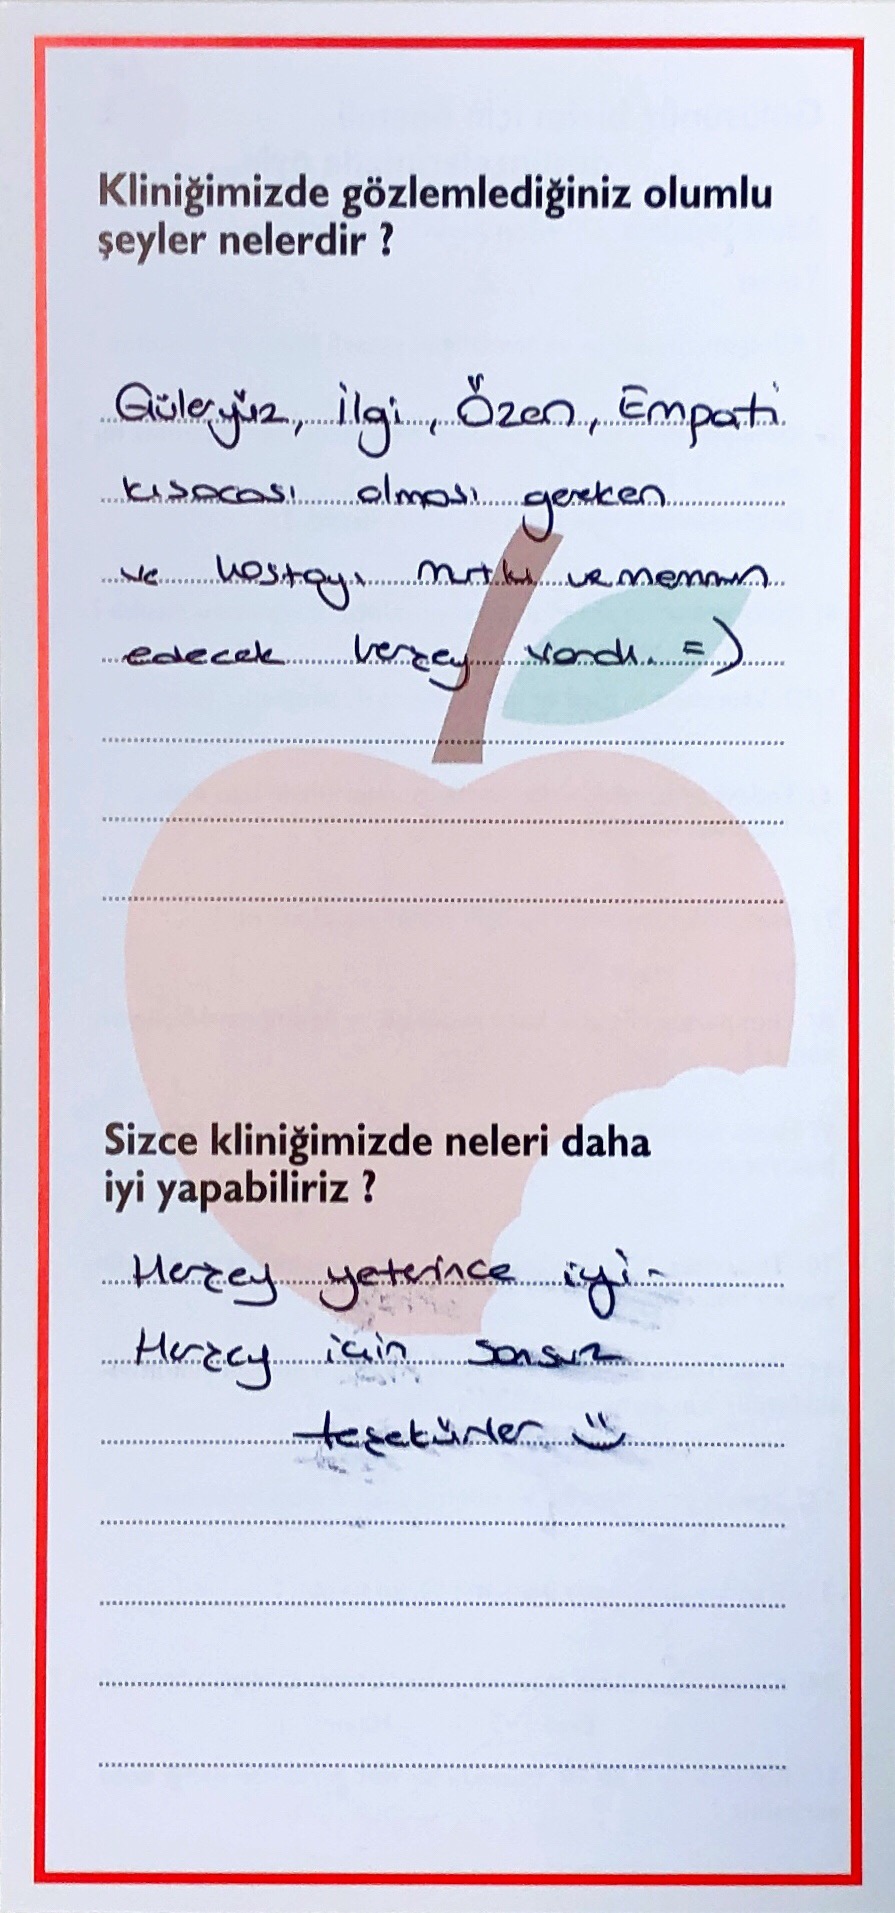 Kliniğimizde gözlemlediğiniz olumlu
şeyler nelerdir ?
Güleryüz, İlgi, Özen, Empati
kısacası olması gereken
ve hastayı mutlu ve memnun
edecek herşey vardı. =)
Sizce kliniğimizde neleri daha
iyi yapabiliriz ?
Herşey yeterince iyi-
Herşey için sonsuz
teşekürler